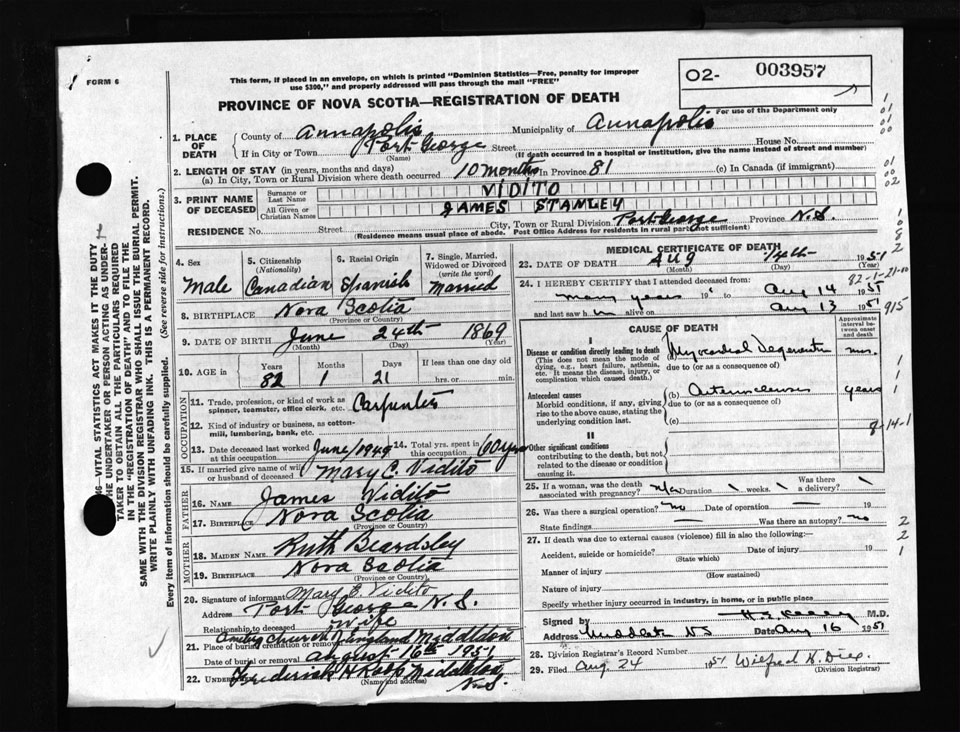 FORM 6
This form, if placed in an envelope, on which is printed "Dominion Statistics—Free, penalty for improper
use $300," and properly addressed will pass through the mail "FREE"
O2- 003957
For use of the Department only
PROVINCE OF NOVA SCOTIA—REGISTRATION OF DEATH
1. PLACE OF DEATH
County of Annapolis Municipality of Annapolis
If in City or Town Port George Street House No.
(Name) (If death occurred in a hospital or institution, give the name instead of street and number)
2. LENGTH OF STAY (in years, months and days)
(a) In City, Town or Rural Division where death occurred 10 months In Province 81 (c) In Canada (if immigrant)
3. PRINT NAME OF DECEASED
Surname or Last Name VIDITO
All Given or Christian Names JAMES STANLEY
RESIDENCE No. Street City, Town or Rural Division Port George Province N.S.
(Residence means usual place of abode. Post Office Address for residents in rural part not sufficient)
4. Sex Male
5. Citizenship (Nationality) Canadian
6. Racial Origin Spanish
7. Single, Married, Widowed or Divorced (write the word) Married
8. BIRTHPLACE Nova Scotia
(Province or Country)
9. DATE OF BIRTH June 24th 1869
(Month) (Day) (Year)
10. AGE in Years Months Days If less than one day old
82 1 21 hrs. or min.
OCCUPATION
11. Trade, profession, or kind of work as spinner, teamster, office clerk, etc. Carpenter
12. Kind of industry or business, as cotton-mill, lumbering, bank, etc.
13. Date deceased last worked at this occupation June/1949
14. Total yrs. spent in this occupation 60 yrs
15. If married give name of wife or husband of deceased Mary C. Vidito
FATHER
16. NAME James Vidito
17. BIRTHPLACE Nova Scotia
(Province or Country)
MOTHER
18. MAIDEN NAME Ruth Beardsley
19. BIRTHPLACE Nova Scotia
(Province or Country)
20. Signature of informant Mary E. Vidito
Address Port George N.S.
Relationship to deceased Wife
21. Place of burial, cremation or removal Church England Middleton
Date of burial or removal August 16th 1951
22. Undertaker Frederick Middleton N.S.
(Name and address)
MEDICAL CERTIFICATE OF DEATH
22. DATE OF DEATH Aug 14th 1951
(Month) (Day) (Year)
24. I HEREBY CERTIFY that I attended deceased from
many years 19 to Aug 14 1951
and last saw him alive on Aug 13 1951
CAUSE OF DEATH
Approximate interval between onset and death
I
Disease or condition directly leading to death
(This does not mean the mode of dying, e.g., heart failure, asthenia, etc. It means the disease, injury, or complication which caused death.)
Myocardial
due to (or as a consequence of)
Antecedent causes
Morbid conditions, if any, giving rise to the above cause, stating the underlying condition last.
(b) years
due to (or as a consequence of)
(c)
II
Other significant conditions
contributing to the death, but not related to the disease or condition causing it.
25. If a woman, was the death associated with pregnancy? Duration weeks. Was there a delivery?
26. Was there a surgical operation? no Date of operation 19
State findings Was there an autopsy? no
27. If death was due to external causes (violence) fill in also the following:—
Accident, suicide or homicide? Date of injury 19
(State which)
Manner of injury
(How sustained)
Nature of injury
Specify whether injury occurred in industry, in home, or in public place
Signed by M.D.
Address Middleton NS Date Aug 16 1951
28. Division Registrar's Record Number
29. Filed Aug. 24 1951 Wilfred
(Division Registrar)
82-1-21-10
915
8-14-1
VITAL STATISTICS ACT MAKES IT THE DUTY
THE UNDERTAKER OR PERSON ACTING AS UNDER-
TAKER TO OBTAIN ALL THE PARTICULARS REQUIRED
IN THE "REGISTRATION OF DEATH" AND TO FILE THE
SAME WITH THE DIVISION REGISTRAR WHO SHALL ISSUE THE BURIAL PERMIT.
WRITE PLAINLY WITH UNFADING INK. THIS IS A PERMANENT RECORD.
Every item of information should be carefully supplied. (See reverse side for instructions.)